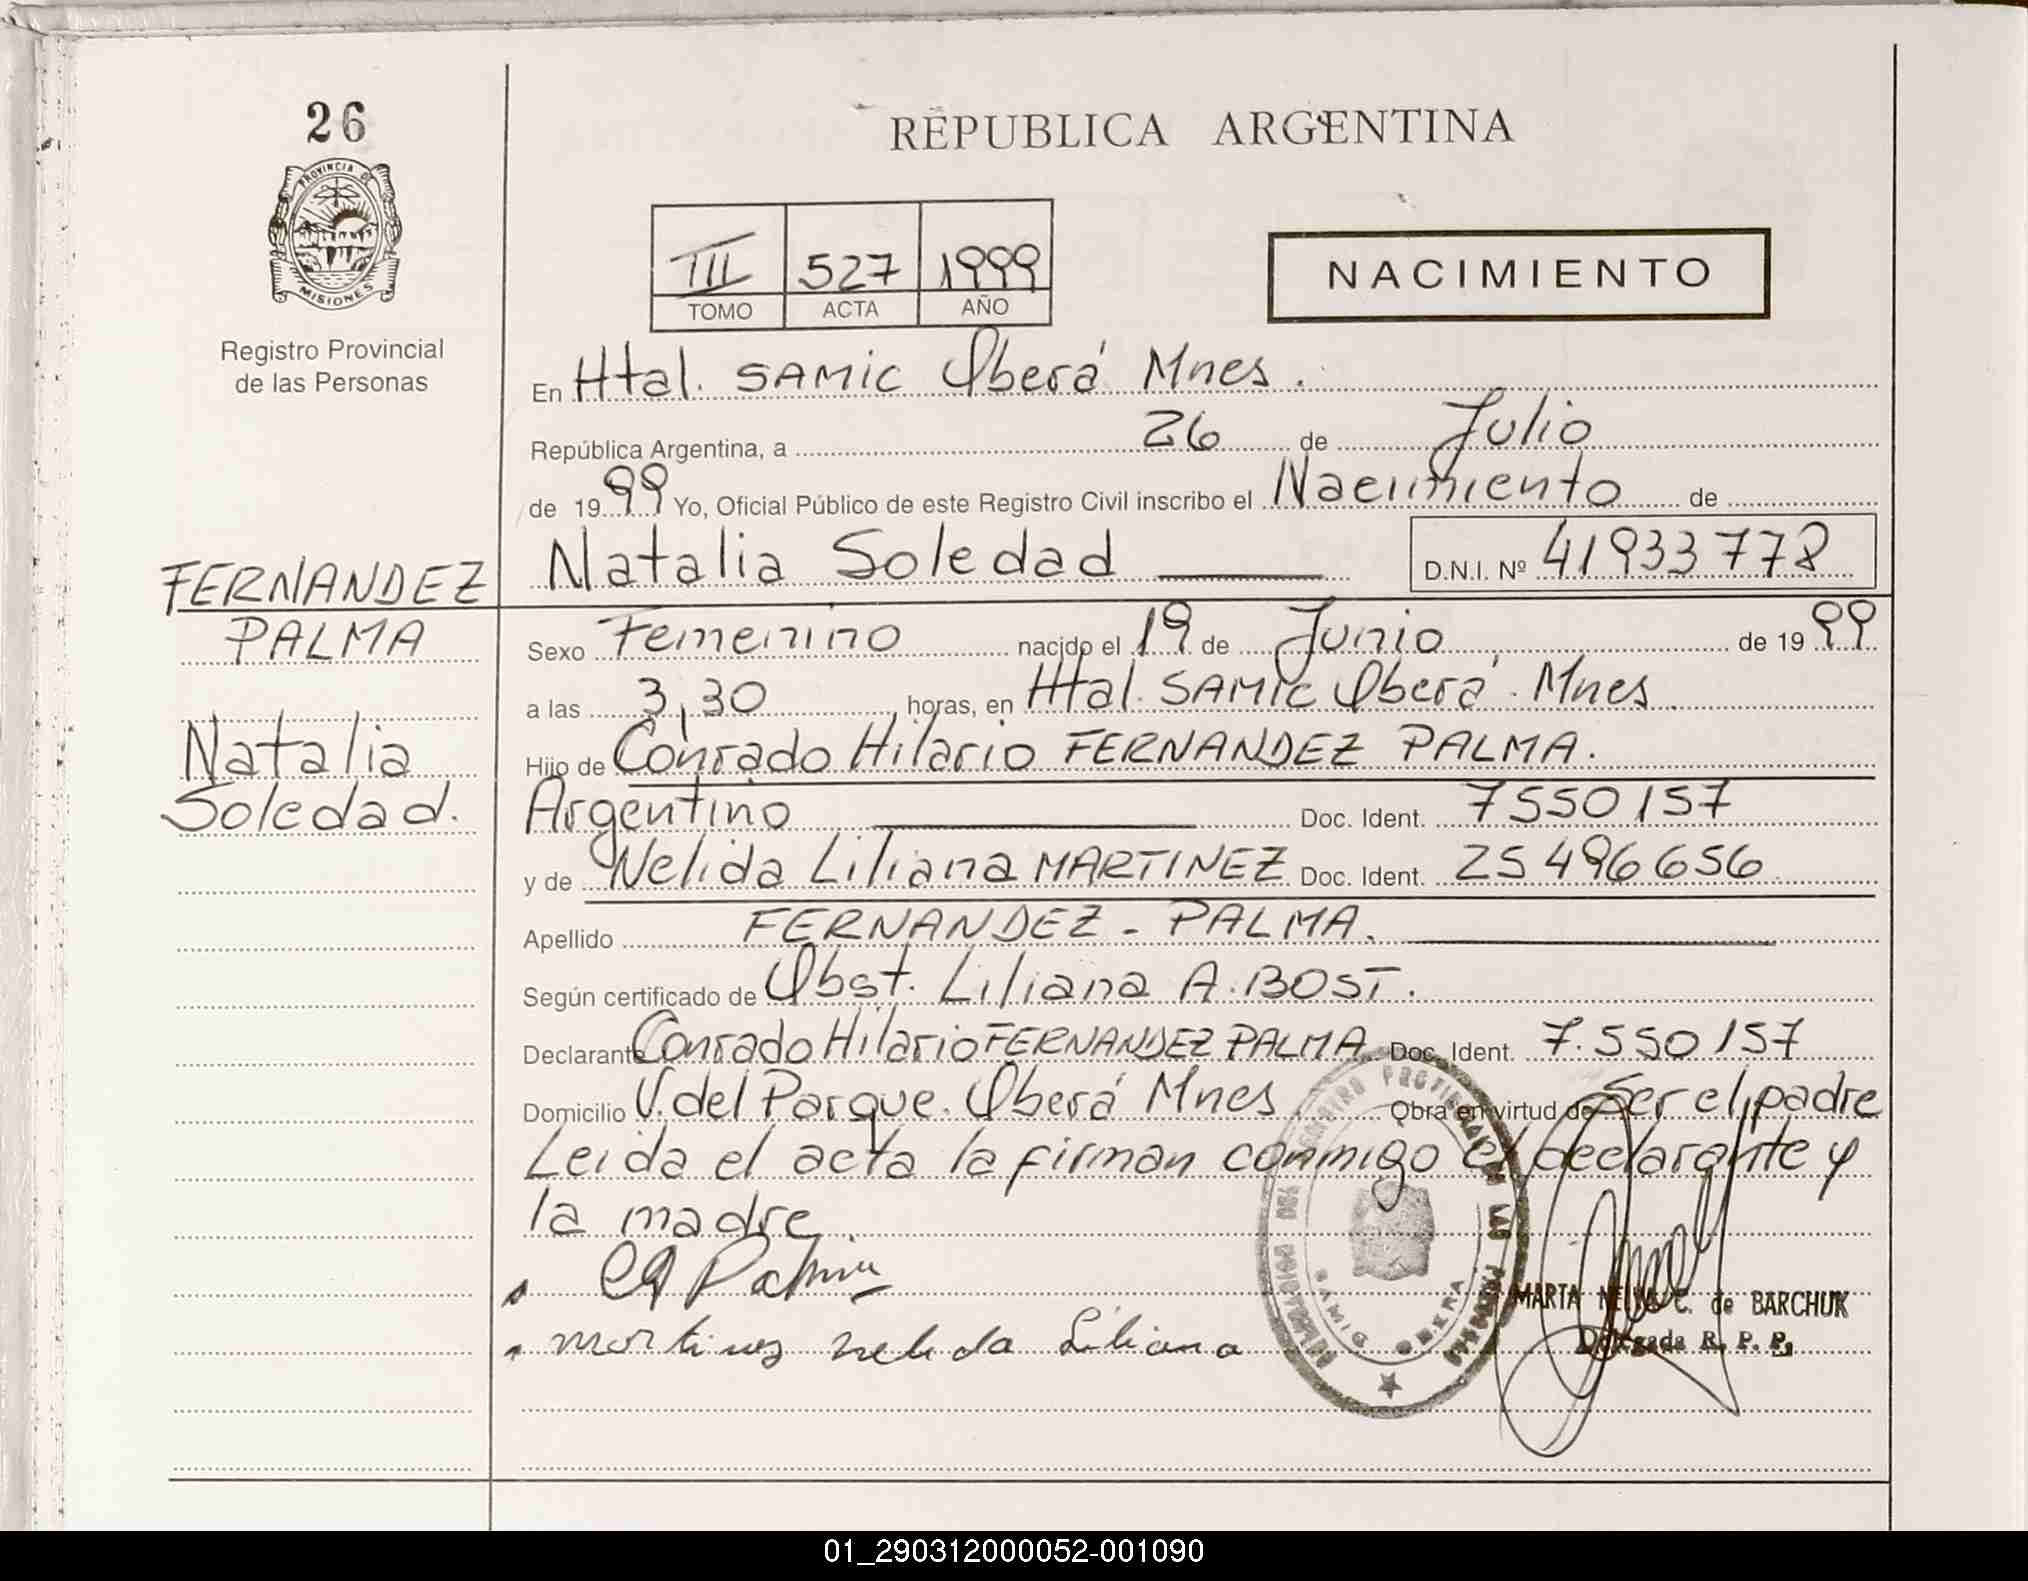 26
PROVINCIA DE
MISIONES
Registro Provincial
de las Personas
REPUBLICA ARGENTINA
III 527 1999
TOMO ACTA AÑO
NACIMIENTO
En Htal. SAMIC Oberá Mnes.
República Argentina, a 26 de Julio
de 1999 Yo, Oficial Público de este Registro Civil inscribo el Nacimiento de
Natalia Soledad D.N.I. Nº 41933778
FERNANDEZ
PALMA
Natalia
Soledad.
Sexo Femenino nacido el 19 de Junio de 1999
a las 3,30 horas, en Htal. SAMIC Oberá. Mnes
Hijo de Conrado Hilario FERNANDEZ PALMA.
Argentino Doc. Ident. 7550157
y de Nelida Liliana MARTINEZ Doc. Ident. 25496656
Apellido FERNANDEZ - PALMA.
Según certificado de Obst. Liliana A. BOST.
Declarante Conrado Hilario FERNANDEZ PALMA Doc. Ident. 7.550157
Domicilio V. del Parque. Oberá Mnes Obra en virtud de Ser el padre
Leida el acta la firman conmigo el declarante y
la madre.
Palma
martines nelida Liliana
SAMIC OBERA
MARTA C. de BARCHUK
Delegada R. P. P.
01_290312000052-001090